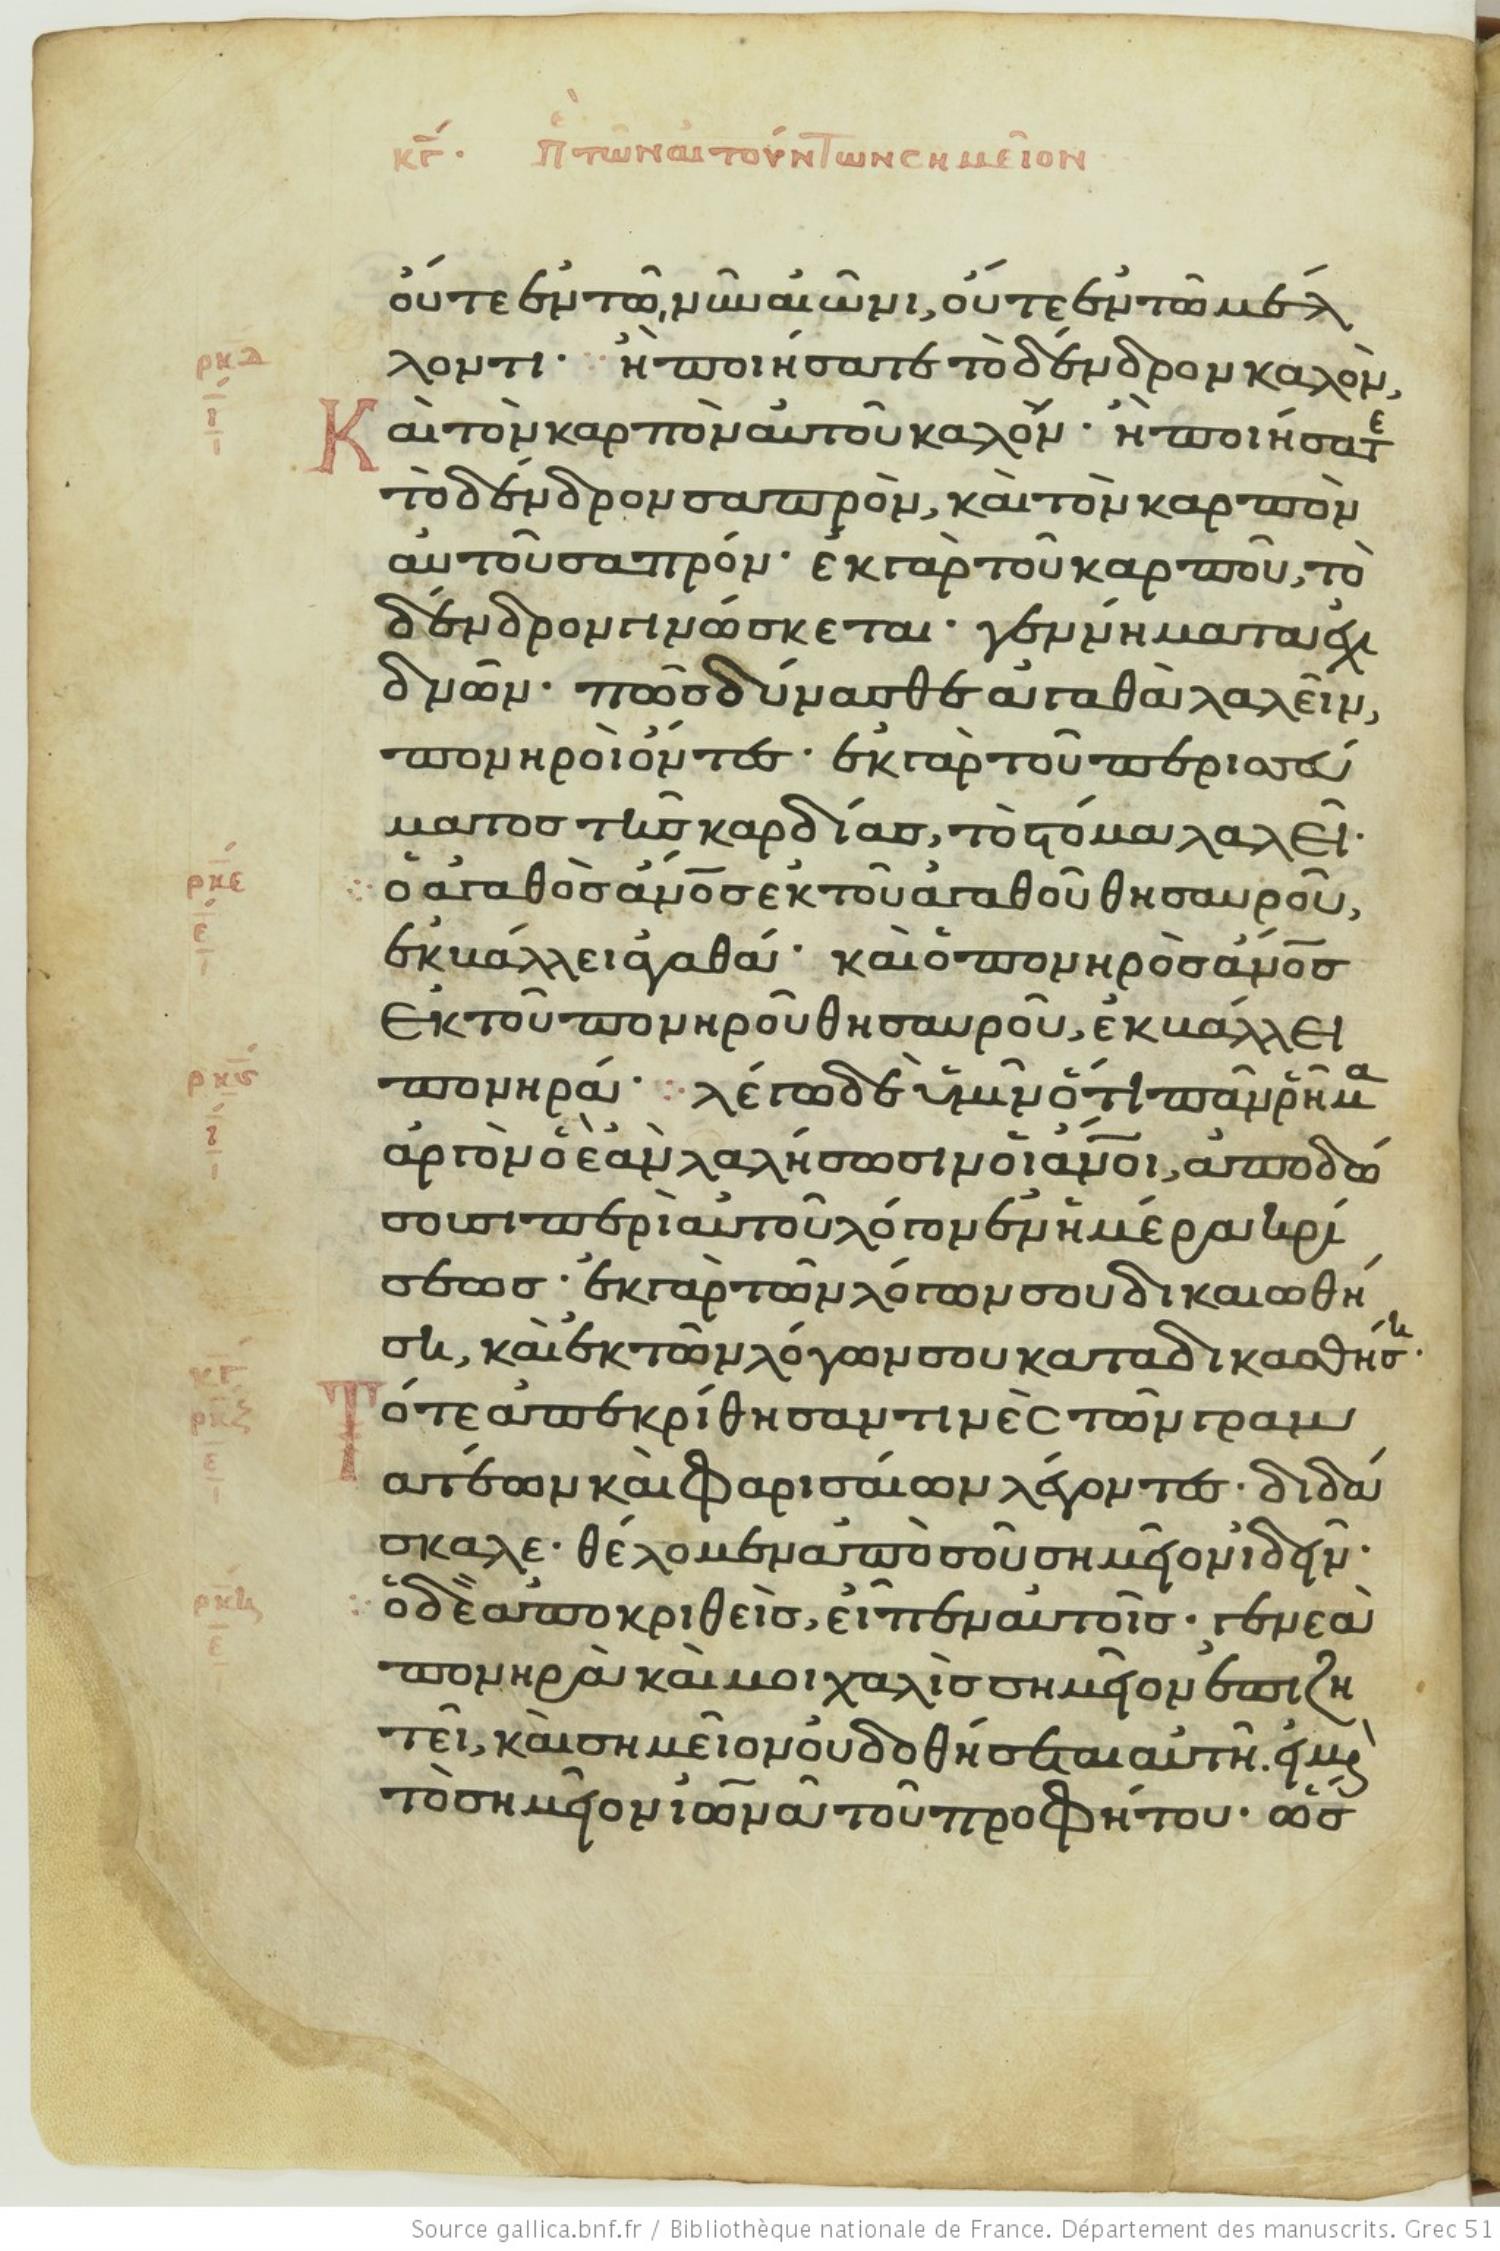 κγ· Πε τῶν αἰτούντων σημεῖον
οὔτε ἐν τῶ νῦν αἰῶνι, οὔτε ἐν τῶ μέλ
ρκδ λοντι· ἢ ποιήσατε τὸ δένδρον καλὸν,
ι
Καὶ τὸν καρπὸν αὐτοῦ καλὸν· ἢ ποιήσατε
τὸ δένδρον σαπρὸν, καὶ τὸν καρπὸν
αὐτοῦ σαπρόν· ἐκ γὰρ τοῦ καρποῦ, τὸ
δένδρον γινώσκεται· γεννήματα ἐχι
δνῶν· πῶς δύνασθε ἀγαθὰ λαλεῖν,
πονηροὶ ὄντες· ἐκ γὰρ τοῦ περισσεύ
ματος τῆς καρδίας, τὸ στόμα λαλεῖ·
ρκε ὁ ἀγαθὸς ἄνος ἐκ τοῦ ἀγαθοῦ θησαυροῦ,
ε
ἐκβάλλει ἀγαθά· καὶ ὁ πονηρὸς ἄνος
ἐκ τοῦ πονηροῦ θησαυροῦ, ἐκβάλλει
ρκϛ πονηρά· λέγω δὲ ὑμῖν ὅτι πᾶν ῥῆμα
ι
ἀργὸν ὃ ἐὰν λαλήσωσιν οἱ ἄνοι, ἀποδώ
σουσι περὶ αὐτοῦ λόγον ἐν ἡμέρα κρί
σεως· ἐκ γὰρ τῶν λόγων σου δικαιωθή
ση, καὶ ἐκ τῶν λόγων σου καταδικασθήση·
κγ
ρκζ Τότε ἀπεκρίθησαν τινὲς τῶν γραμ
ε
ατέων καὶ φαρισαίων λέγοντες· διδά
σκαλε· θέλομεν ἀπὸ σοῦ σημεῖον ἰδεῖν·
ρκη ὁ δὲ ἀποκριθεὶς, εἶπεν αὐτοῖς· γενεὰ
ε
πονηρὰ καὶ μοιχαλὶς σημεῖον ἐπιζη
τεῖ, καὶ σημεῖον οὐ δοθήσεται αὐτῆ. εἰ μὴ
τὸ σημεῖον ἰωνᾶ τοῦ προφήτου· ὥσ
Source gallica.bnf.fr / Bibliothèque nationale de France. Département des manuscrits. Grec 51